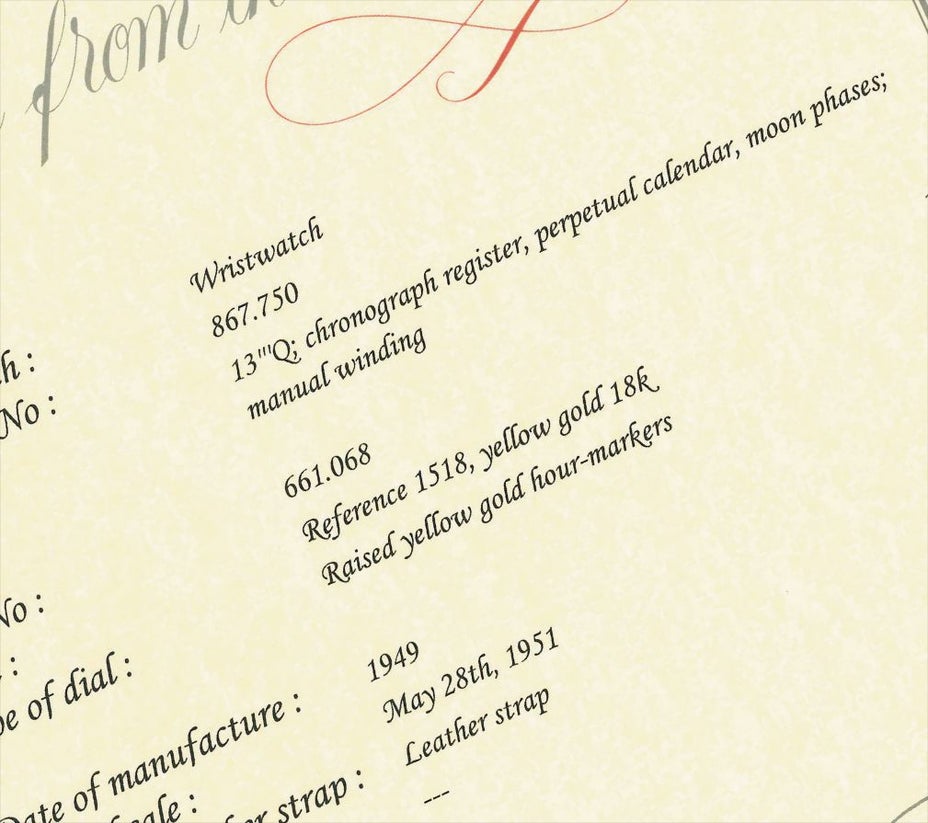 from the
Wristwatch
867.750
13'''Q; chronograph register, perpetual calendar, moon phases;
manual winding
No :
661.068
Reference 1518, yellow gold 18k
Raised yellow gold hour-markers
No :
of dial :
1949
May 28th, 1951
Date of manufacture :
Leather strap
strap :
---